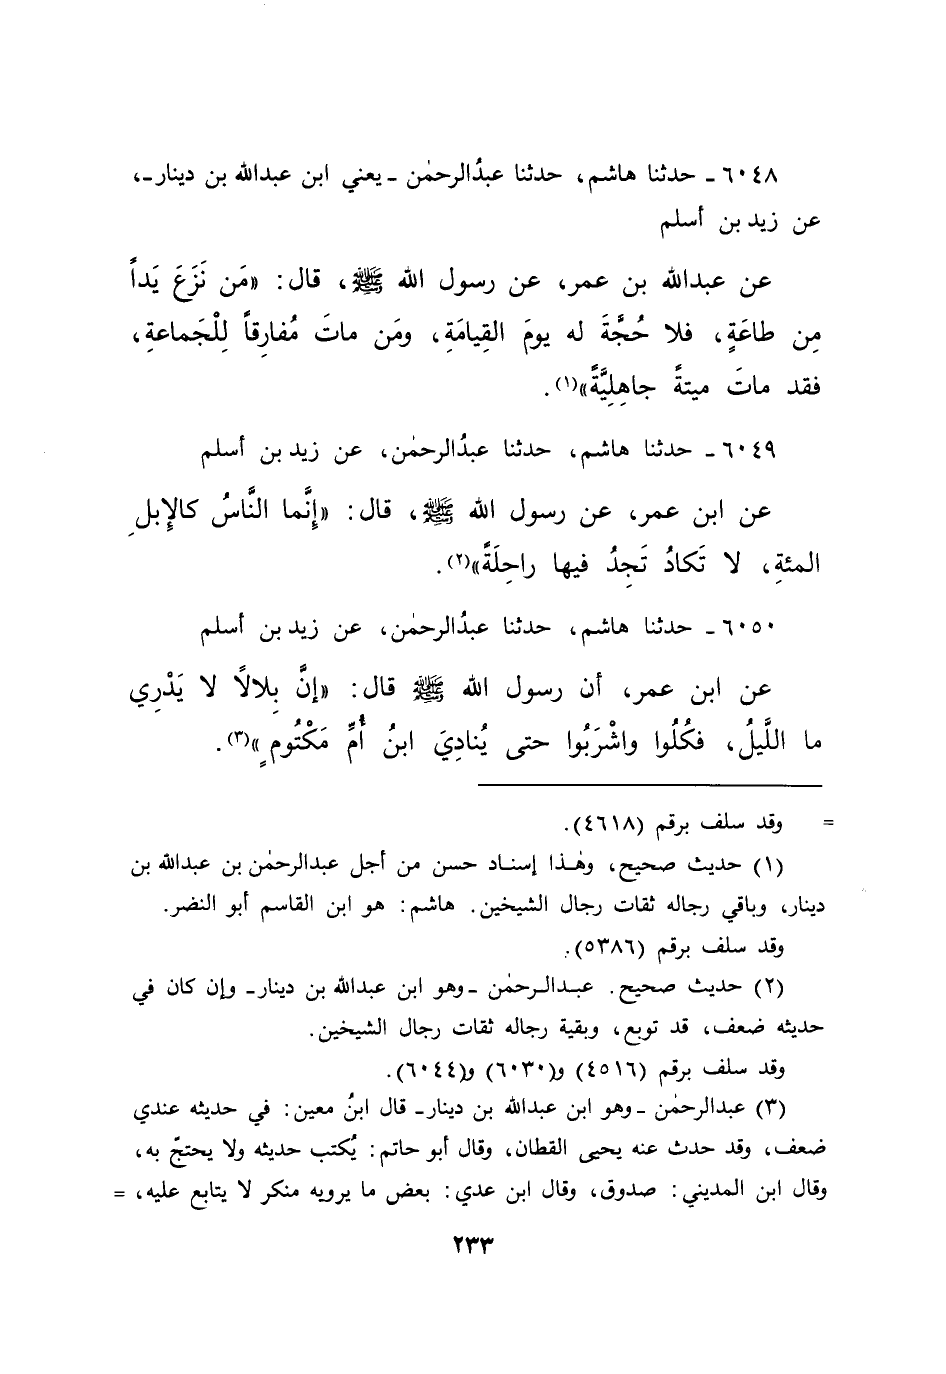 ٦٠٤٨ ـ حدثنا هاشم، حدثنا عبدُالرحمٰن ـ يعني ابن عبدالله بن دينار ـ،
عن زيد بن أسلم
عن عبدالله بن عمر، عن رسول الله ﷺ، قال: «مَن نَزَعَ يَداً
مِن طاعَةٍ، فلا حُجَّةَ له يومَ القِيامَةِ، ومَن ماتَ مُفارِقاً لِلْجَماعةِ،
فقد ماتَ ميتةً جاهِلِيَّةً»(١).
٦٠٤٩ ـ حدثنا هاشم، حدثنا عبدُالرحمٰن، عن زيد بن أسلم
عن ابن عمر، عن رسول الله ﷺ، قال: «إِنَّما النَّاسُ كالإِبلِ
المئةِ، لا تَكادُ تَجِدُ فيها راحِلَةً»(٢).
٦٠٥٠ ـ حدثنا هاشم، حدثنا عبدُالرحمٰن، عن زيد بن أسلم
عن ابن عمر، أن رسول الله ﷺ قال: «إنَّ بِلالًا لا يَدْرِي
ما اللَّيلُ، فكُلُوا واشْرَبُوا حتى يُنادِيَ ابنُ أُمِّ مَكْتُومٍ»(٣).
= وقد سلف برقم (٤٦١٨).
(١) حديث صحيح، وهٰذا إسناد حسن من أجل عبدالرحمٰن بن عبدالله بن
دينار، وباقي رجاله ثقات رجال الشيخين. هاشم: هو ابن القاسم أبو النضر.
وقد سلف برقم (٥٣٨٦).
(٢) حديث صحيح. عبدالرحمٰن ـ وهو ابن عبدالله بن دينار ـ وإن كان في
حديثه ضعف، قد توبع، وبقية رجاله ثقات رجال الشيخين.
وقد سلف برقم (٤٥١٦) و(٦٠٣٠) و(٦٠٤٤).
(٣) عبدالرحمٰن ـ وهو ابن عبدالله بن دينار ـ قال ابنُ معين: في حديثه عندي
ضعف، وقد حدث عنه يحيى القطان، وقال أبو حاتم: يُكتب حديثه ولا يحتجّ به،
وقال ابن المديني: صدوق، وقال ابن عدي: بعض ما يرويه منكر لا يتابع عليه، =
٢٣٣